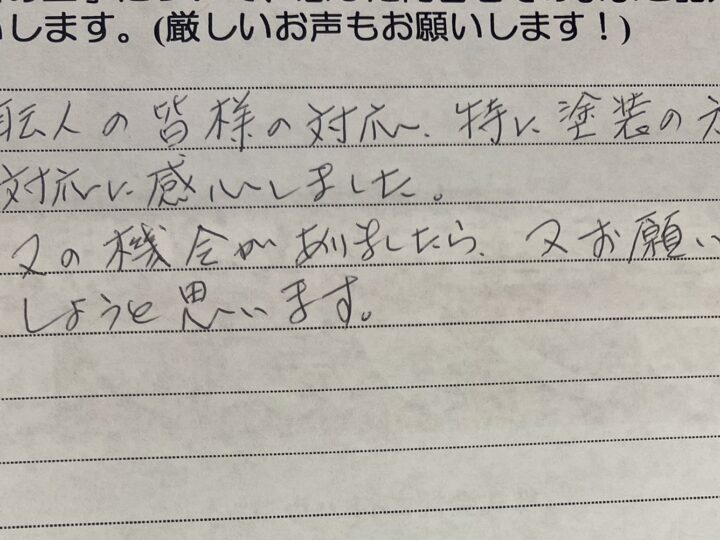 します。(厳しいお声もお願いします!)
職人の皆様の対応、特に塗装の方
対応に感心しました。
又の機会がありましたら、又お願い
しようと思います。